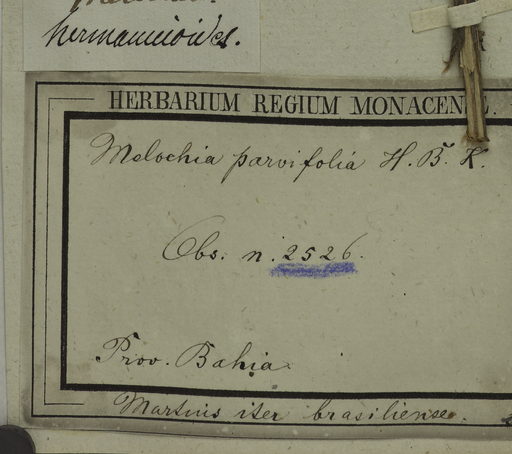 hermannioides.
HERBARIUM REGIUM MONACENSE.
Melochia parvifolia H. B. K.
Obs. n. 2526.
Prov. Bahia.
Martius iter brasiliense.